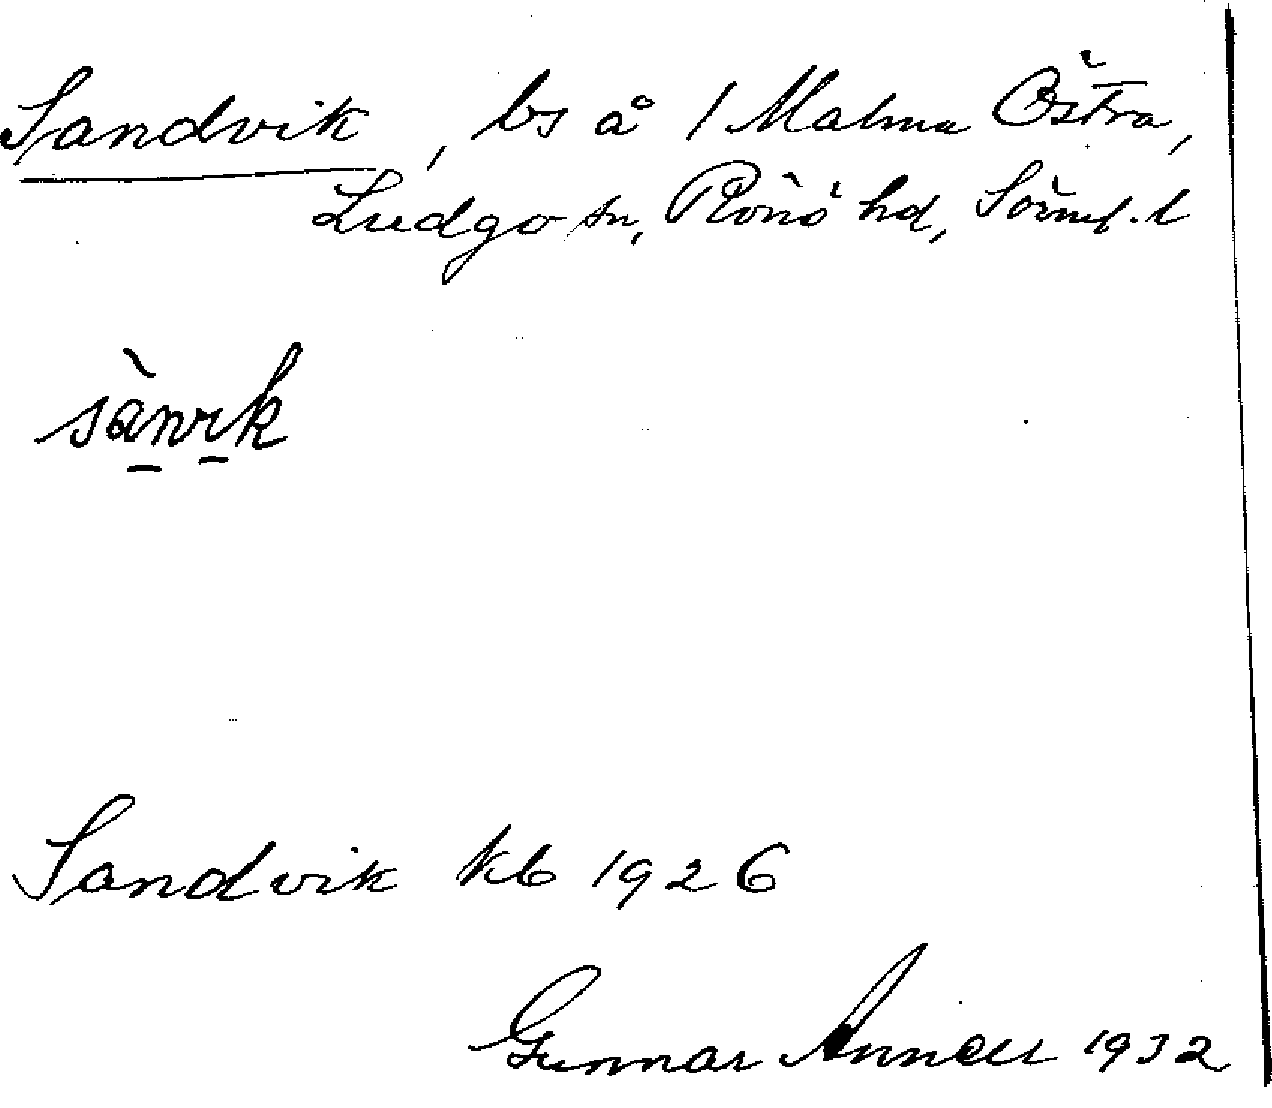 Sandvik, bs å 1 Malma Östra,
Ludgo sn, Rönö hd, Sörml. l
sànvik
Sandvik kb 1926
Gunnar Annell 1932